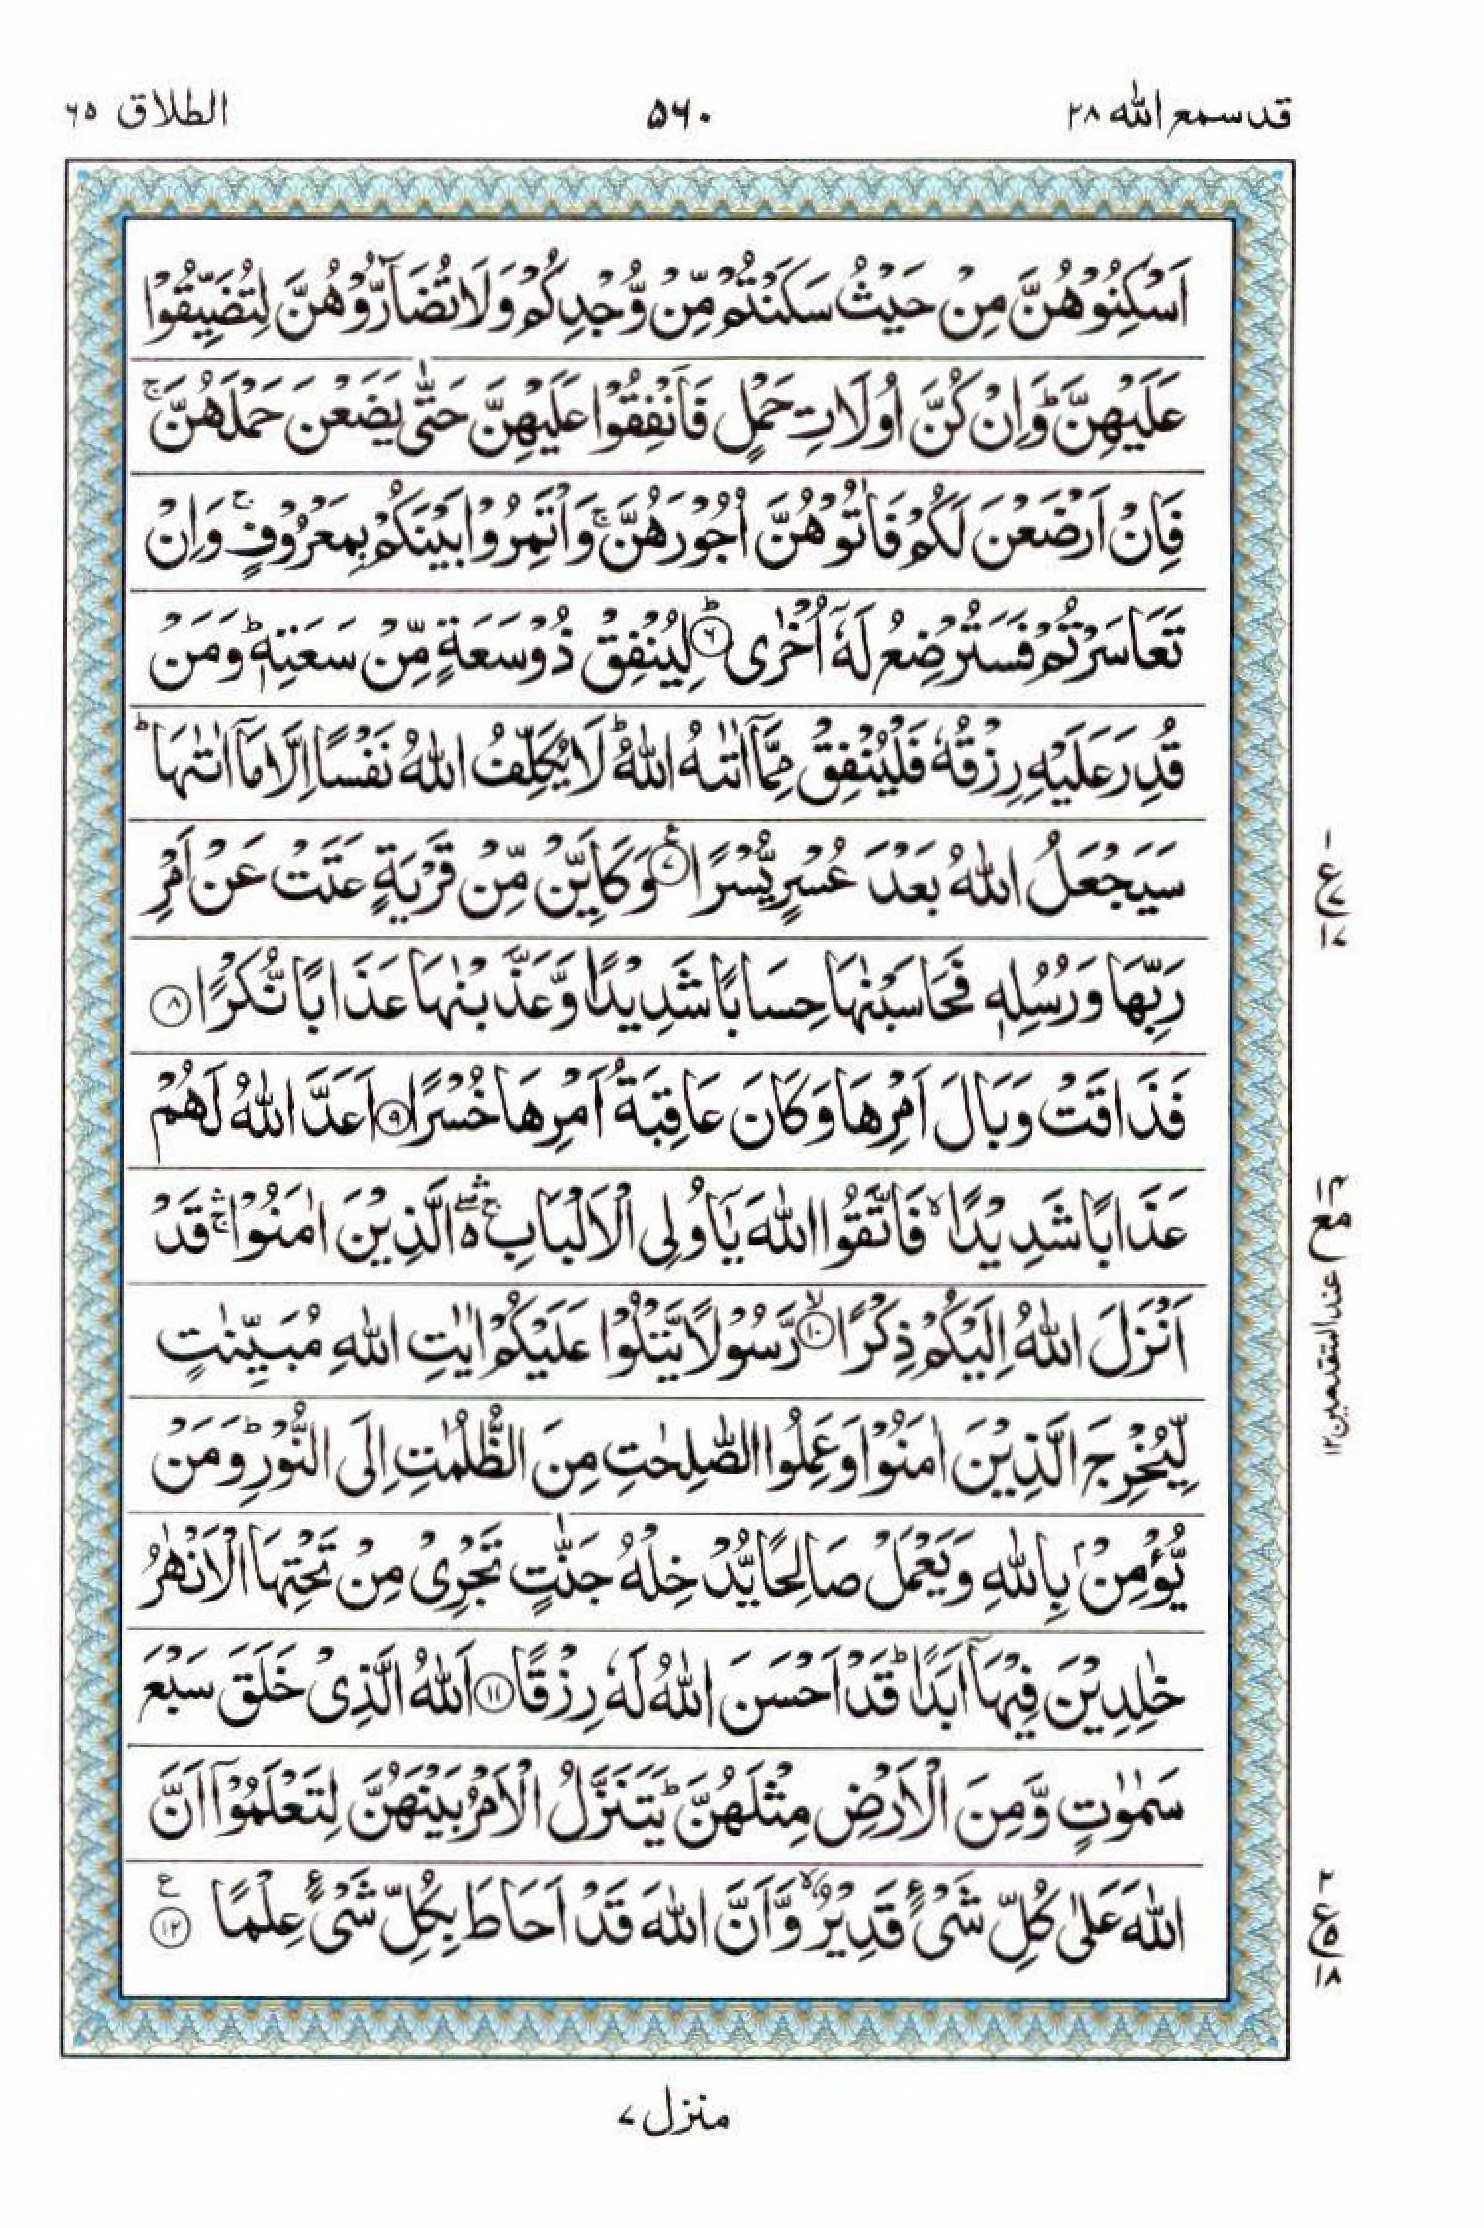 قد سمع الله ٢٨
٥٦٠
الطلاق ٦٥
اَسْكِنُوْهُنَّ مِنْ حَيْثُ سَكَنْتُمْ مِّنْ وُّجْدِكُمْ وَلَا تُضَآرُّوْهُنَّ لِتُضَيِّقُوْا
عَلَيْهِنَّ ؕ وَاِنْ كُنَّ اُولَاتِ حَمْلٍ فَاَنْفِقُوْا عَلَيْهِنَّ حَتّٰى يَضَعْنَ حَمْلَهُنَّ ۚ
فَاِنْ اَرْضَعْنَ لَكُمْ فَاٰتُوْهُنَّ اُجُوْرَهُنَّ ۚ وَاْتَمِرُوْا بَيْنَكُمْ بِمَعْرُوْفٍ ۚ وَاِنْ
تَعَاسَرْتُمْ فَسَتُرْضِعُ لَهٗۤ اُخْرٰى ؕ ۶ لِيُنْفِقْ ذُوْ سَعَةٍ مِّنْ سَعَتِهٖ ؕ وَمَنْ
قُدِرَ عَلَيْهِ رِزْقُهٗ فَلْيُنْفِقْ مِمَّاۤ اٰتٰىهُ اللّٰهُ ؕ لَا يُكَلِّفُ اللّٰهُ نَفْسًا اِلَّا مَاۤ اٰتٰىهَا ؕ
سَيَجْعَلُ اللّٰهُ بَعْدَ عُسْرٍ يُّسْرًا ۷ وَكَاَيِّنْ مِّنْ قَرْيَةٍ عَتَتْ عَنْ اَمْرِ
رَبِّهَا وَرُسُلِهٖ فَحَاسَبْنٰهَا حِسَابًا شَدِيْدًا وَّعَذَّبْنٰهَا عَذَابًا نُّكْرًا ۸
فَذَاقَتْ وَبَالَ اَمْرِهَا وَكَانَ عَاقِبَةُ اَمْرِهَا خُسْرًا ۹ اَعَدَّ اللّٰهُ لَهُمْ
عَذَابًا شَدِيْدًا ۙ فَاتَّقُوا اللّٰهَ يٰۤاُولِى الْاَلْبَابِ ۛۚ ۖ الَّذِيْنَ اٰمَنُوْا ۛۚ قَدْ
اَنْزَلَ اللّٰهُ اِلَيْكُمْ ذِكْرًا ۙ ۱۰ رَّسُوْلًا يَّتْلُوْا عَلَيْكُمْ اٰيٰتِ اللّٰهِ مُبَيِّنٰتٍ
لِّيُخْرِجَ الَّذِيْنَ اٰمَنُوْا وَعَمِلُوا الصّٰلِحٰتِ مِنَ الظُّلُمٰتِ اِلَى النُّوْرِ ؕ وَمَنْ
يُّؤْمِنْۢ بِاللّٰهِ وَيَعْمَلْ صَالِحًا يُّدْخِلْهُ جَنّٰتٍ تَجْرِىْ مِنْ تَحْتِهَا الْاَنْهٰرُ
خٰلِدِيْنَ فِيْهَاۤ اَبَدًا ؕ قَدْ اَحْسَنَ اللّٰهُ لَهٗ رِزْقًا ۱۱ اَللّٰهُ الَّذِىْ خَلَقَ سَبْعَ
سَمٰوٰتٍ وَّمِنَ الْاَرْضِ مِثْلَهُنَّ ؕ يَتَنَزَّلُ الْاَمْرُ بَيْنَهُنَّ لِتَعْلَمُوْۤا اَنَّ
اللّٰهَ عَلٰى كُلِّ شَىْءٍ قَدِيْرٌ ۙ وَّاَنَّ اللّٰهَ قَدْ اَحَاطَ بِكُلِّ شَىْءٍ عِلْمًا ۱۲
١ ع ٧ ١٧
مع عند المتقدمین ١٢
٢ ع ٥ ١٨
منزل ٧